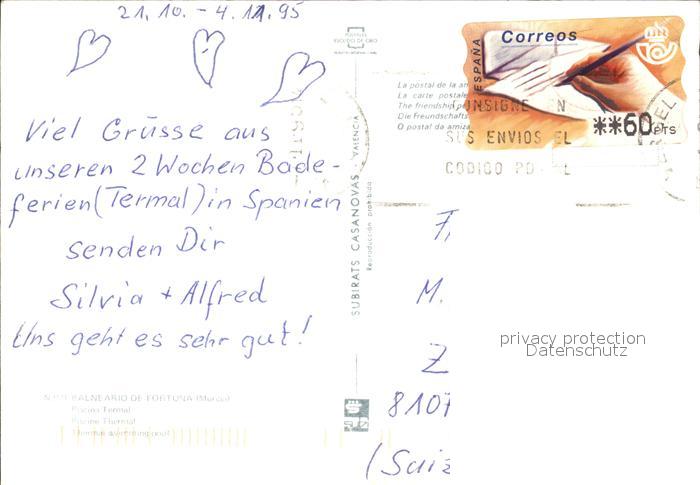 21.10. - 4.11.95
Viel Grüsse aus
unseren 2 Wochen Bade-
ferien (Termal) in Spanien
senden Dir
Silvia + Alfred
Uns geht es sehr gut!
BALNEARIO DE FORTUNA (Murcia)
Piscina Termal
Piscine Thermal
Thermal swimming pool
SUBIRATS CASANOVAS - VALENCIA
Reproducción prohibida
ESPAÑA
Correos
**60 PTS
La postal de la am
La carte postale
The friendship p
Die Freundschafts
O postal da amiza
CONSIGNE EN
SUS ENVIOS EL
CODIGO PO
M.
Z
8107
(Suiz
privacy protection
Datenschutz